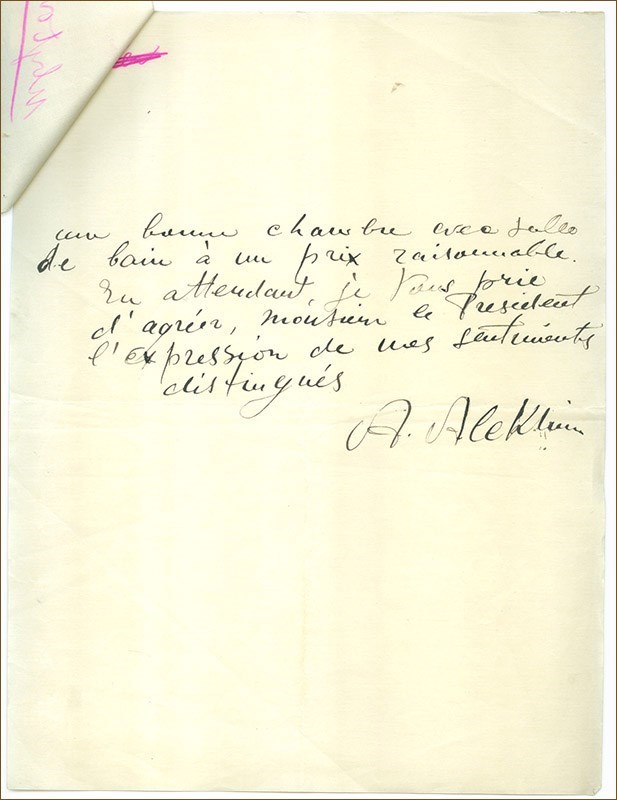 une bonne chambre avec salle
de bain à un prix raisonnable.
En attendant, je Vous prie
d'agréer, monsieur le Président
l'expression de mes sentiments
distingués
A. Alekhine